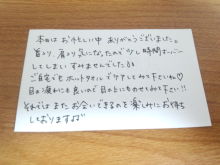 本日はお忙しい中ありがとうございました。
首こり、肩こり気になったので少し時間オーバー
してしまいすみませんでした
ご自宅でもホットタオルでケアしてみて下さいね♡
目の疲れにも良いので目の上にものせてみて下さい!!
それではまたお会いできるのを楽しみにお待ち
しております♪